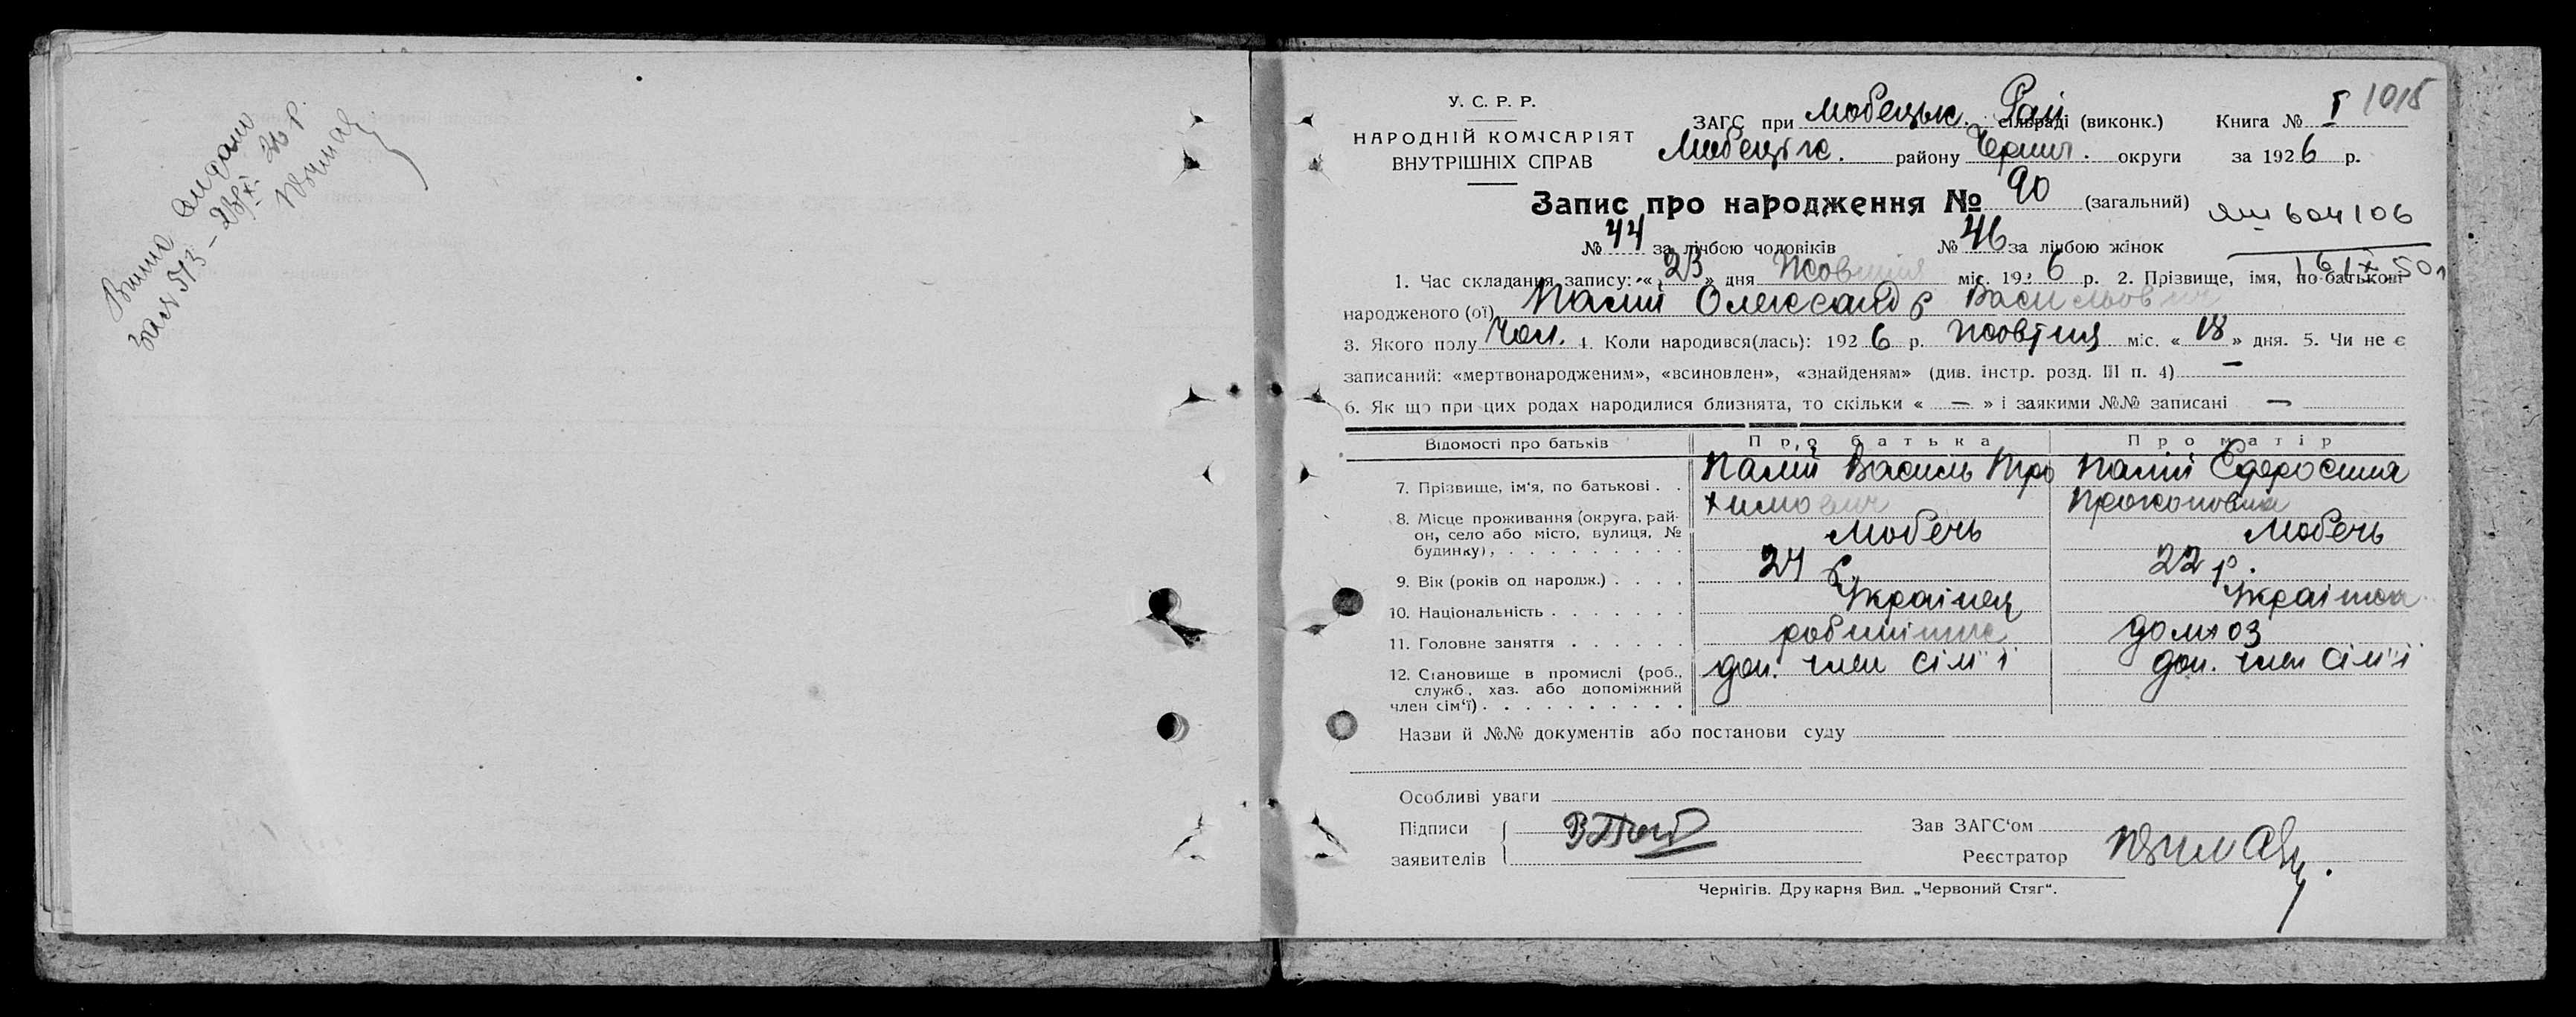 Витяг видано
зая 513 – 23/X 26 р.
У. С. Р. Р.
НАРОДНІЙ КОМІСАРІЯТ
ВНУТРІШНІХ СПРАВ
ЗАГС при Любецьк. Рай сільраді (виконк.) Книга № I 1015
Любецьк. району Черниг. округи за 1926 р.
Запис про народження № 90 (загальний)
ЯШ 604106
№ 44 за лічбою чоловіків № 46 за лічбою жінок
16 IX 50
1. Час складання запису: « 23 » дня Жовтня міс. 1926 р. 2. Прізвище, імя, по-батькові
народженого (ої) Палій Олександр Васильович
3. Якого полу Чол. 4. Коли народився(лась): 1926 р. Жовтня міс. « 18 » дня. 5. Чи не є
записаний: «мертвонародженим», «всиновлен», «знайденям» (див. інстр. розд. III п. 4) —
6. Як що при цих родах народилися близнята, то скільки « — » і заякими №№ записані —
Відомості про батьків Про батька Про матір
7. Прізвище, ім'я, по батькові . . Палій Василь Трохимович Палій Єфросиния Прокоповна
8. Місце проживання (округа, рай-
он, село або місто, вулиця, №
будинку), . . . . . . . . . Любечь Любечь
9. Вік (років од народж.) . . . . 24 р. 22 р.
10. Національність . . . . . . . Українец Українка
11. Головне заняття . . . . . . робитник домхоз
12. Становище в промислі (роб.,
служб., хаз. або допоміжний
член сім'ї) . . . . . . . . . . доп. член сім"ї доп. член сім"ї
Назви й №№ документів або постанови суду
Особливі уваги
Підписи
заявителів
Зав ЗАГС'ом
Реєстратор
Чернігів. Друкарня Вид. „Червоний Стяг".